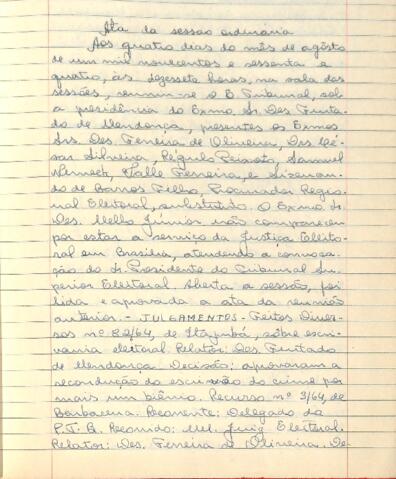 Ata da sessão ordinária
Aos quatro dias do mês de agôsto
de um mil novecentos e sessenta e
quatro, às dezessete horas, na sala das
sessões, reuniu-se o E. Tribunal, sob
a presidência do Exmo. Sr. Des. Furta-
do de Mendonça, presentes os Exmos.
Srs. Des. Ferreira de Oliveira, Drs. Cé-
sar Silveira, Régulo Peixoto, Samuel
Werneck, Valle Ferreira, e Sizenan-
do de Barros Filho, Procurador Regio-
nal Eleitoral, substituto. O Exmo. Sr.
Des. Mello Júnior não compareceu
por estar a serviço da Justiça Eleito-
ral em Brasília, atendendo a convoca-
ção do Sr. Presidente do Tribunal Su-
perior Eleitoral. Aberta a sessão, foi
lida e aprovada a ata da reunião
anterior. - JULGAMENTOS - Feitos Diver-
sos nº 82/64, de Itajubá, sôbre escri-
vania eleitoral. Relator: Des. Furtado
de Mendonça. Decisão: aprovaram a
recondução do escrivão do crime por
mais um biênio. Recurso nº 3/64, de
Barbacena. Recorrente: Delegado do
P.T.B. Recorrido: MM. Juiz Eleitoral.
Relator: Des. Ferreira de Oliveira. De-